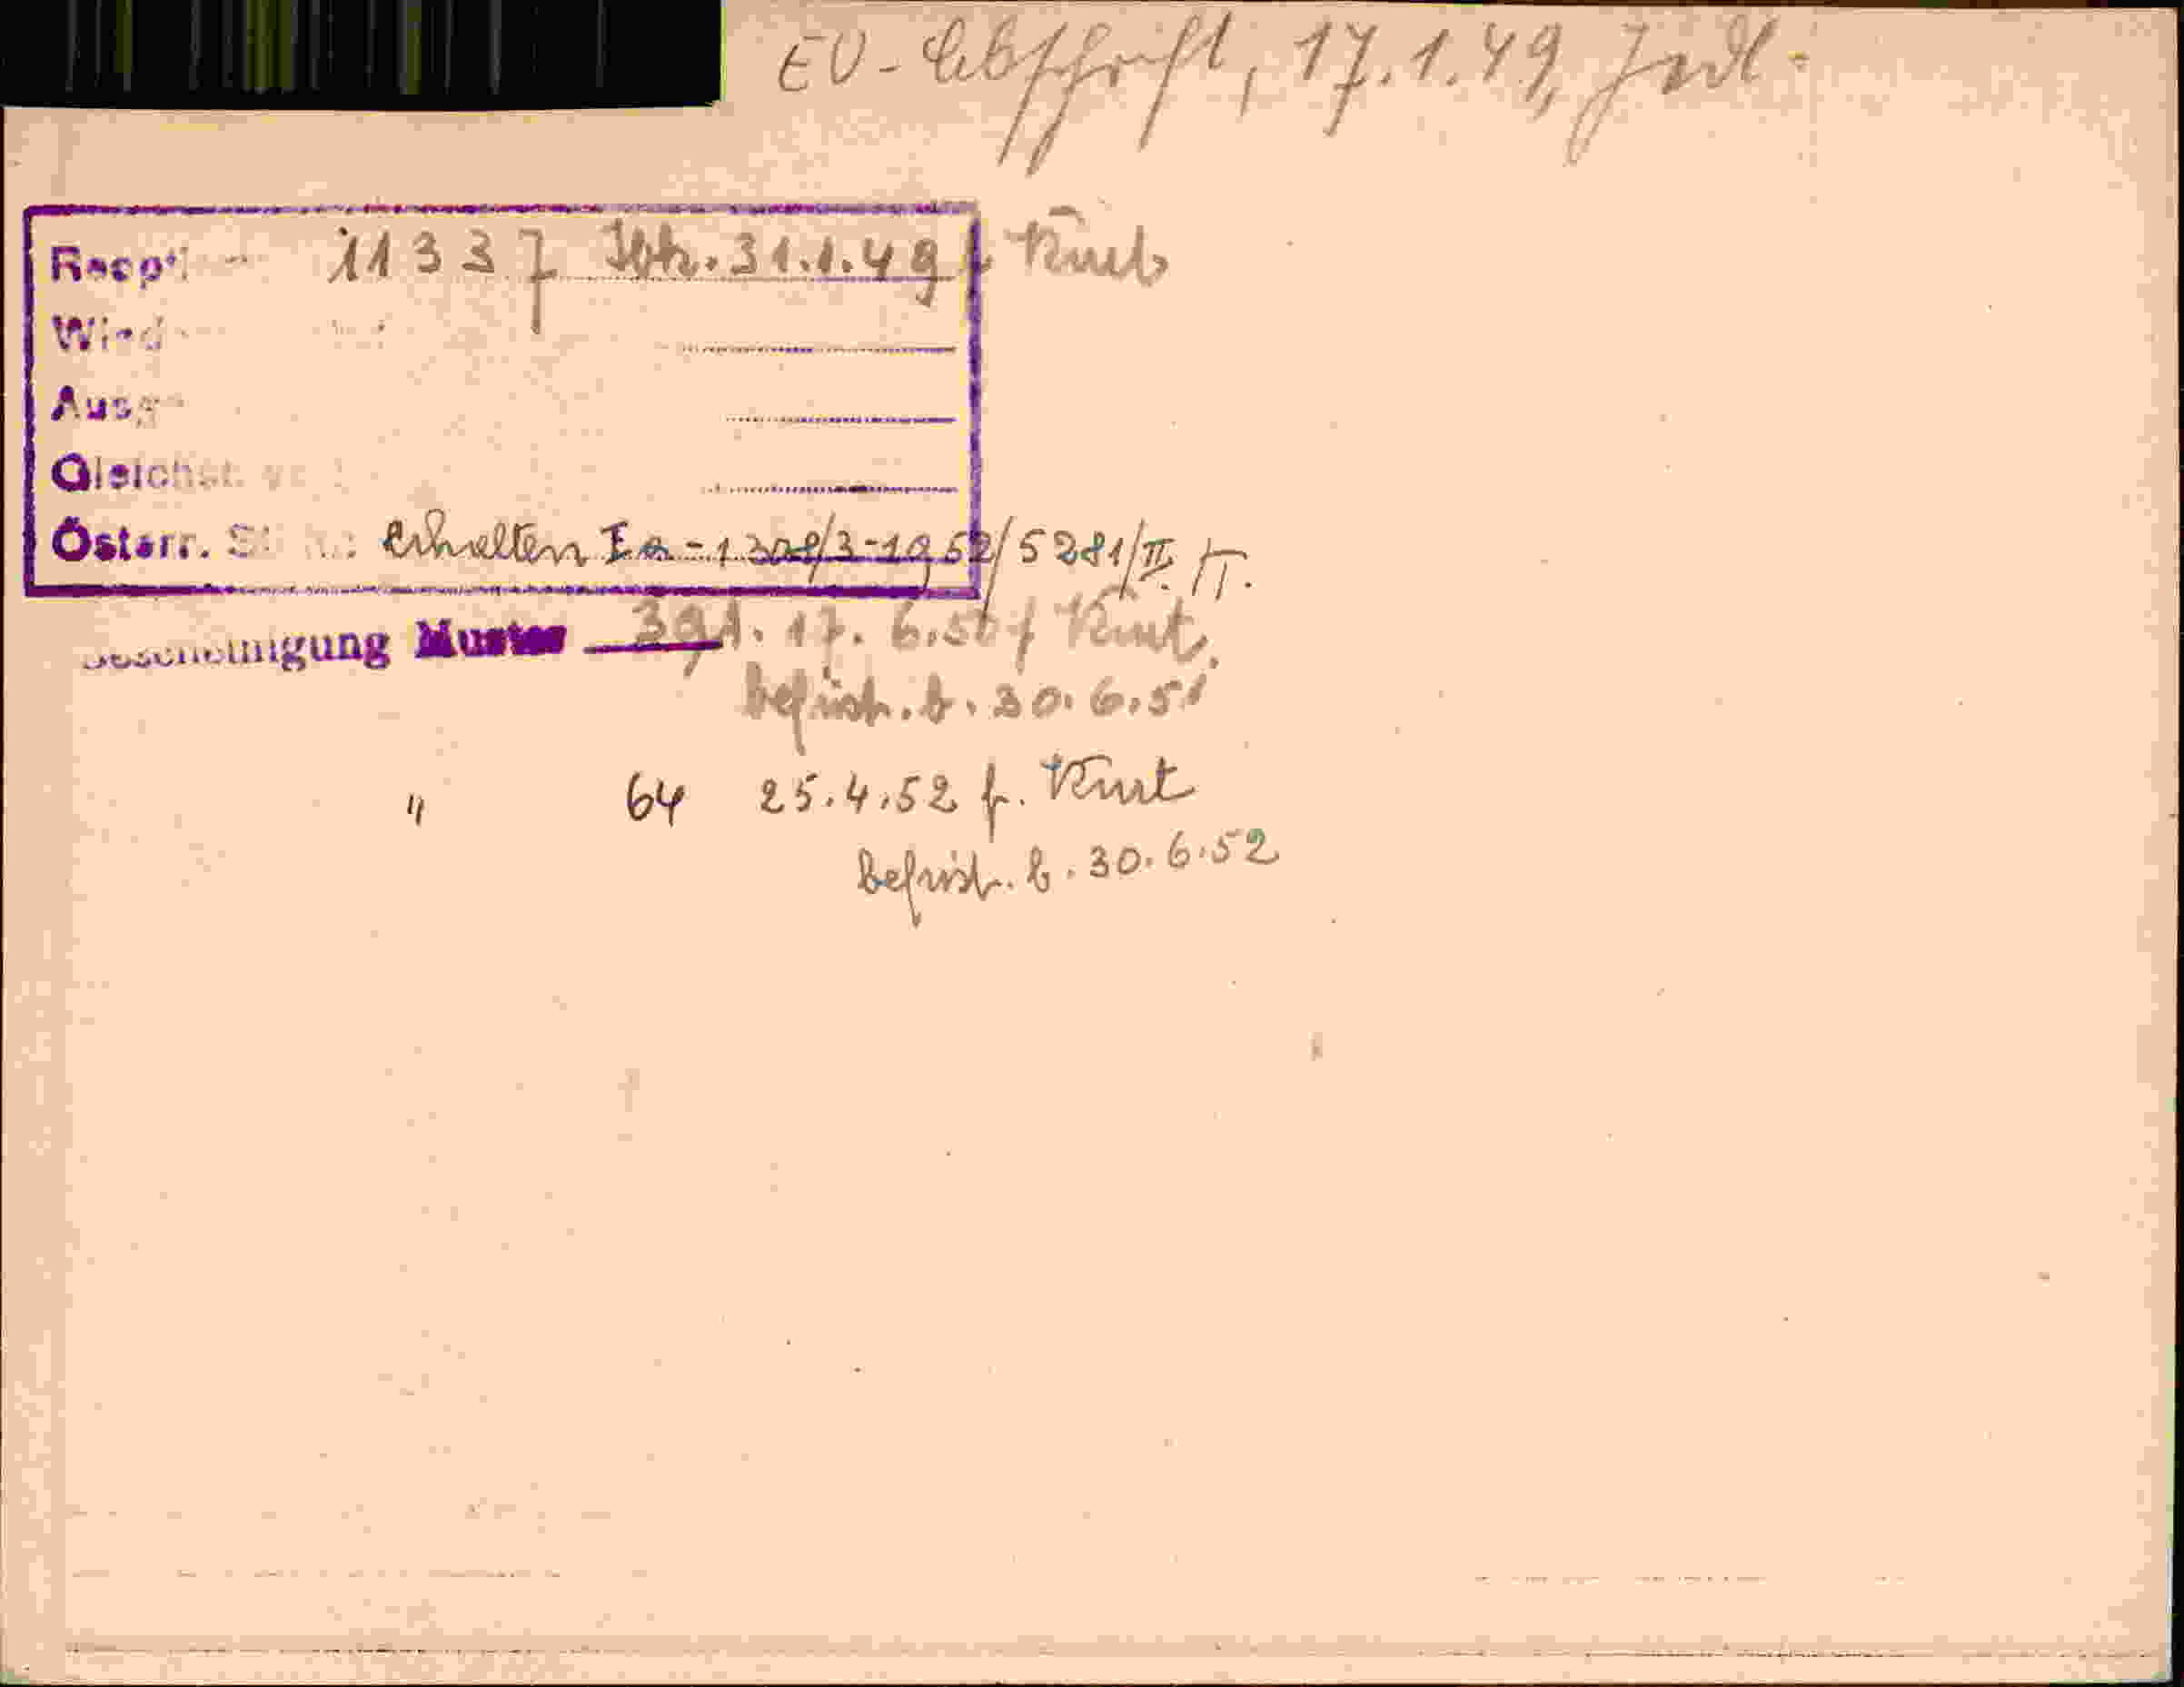 EU-Abschrift, 17.1.49,
11337 31.1.49 f Kurt
Wied
Ausg
Gleichst.
Österr. St erhalten Ia-1308/3-1952/5281/II/T.
Bescheinigung Muster 17. 6.50 f Kurt,
befrist. b. 30.6.51
" 64 25.4.52 f. Kurt
befrist. b. 30.6.52